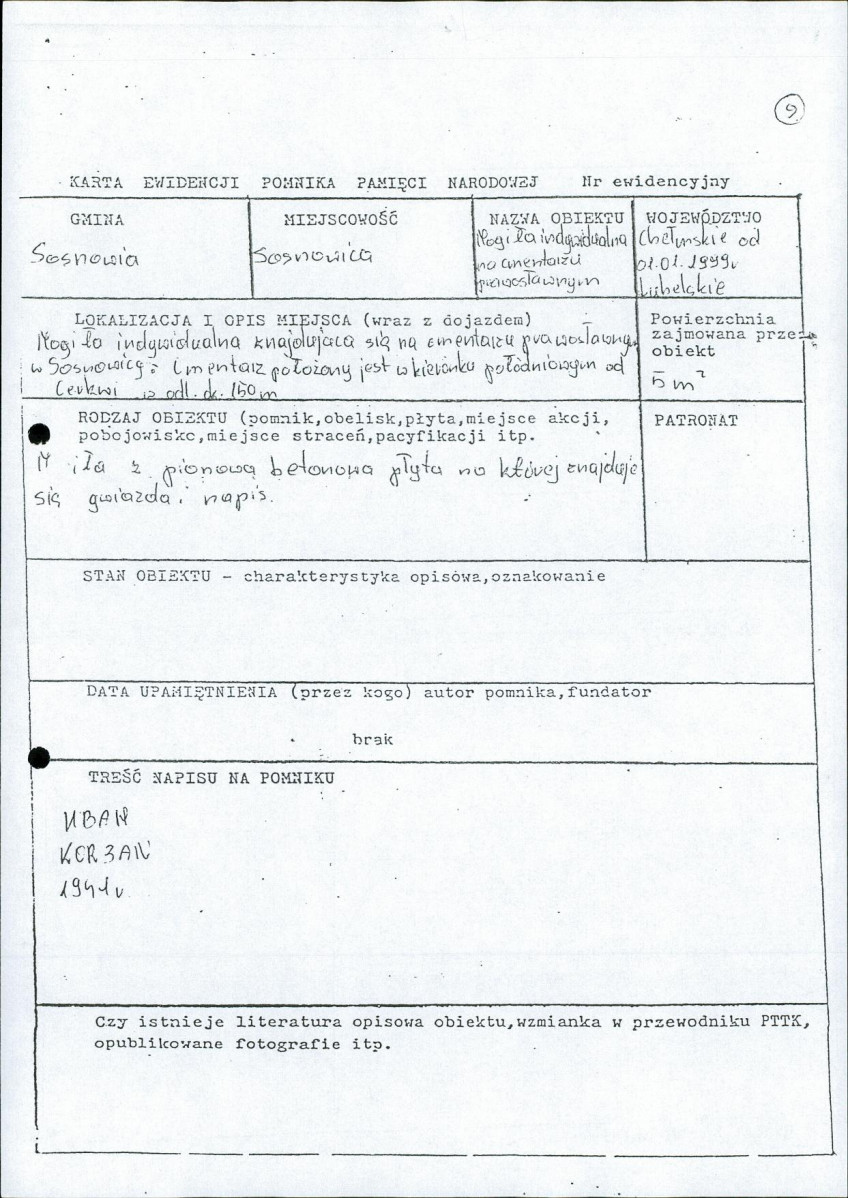 9
KARTA EWIDENCJI POMNIKA PAMIĘCI NARODOWEJ Nr ewidencyjny
GMINA
Sosnowia
MIEJSCOWOŚĆ
Sosnowica
NAZWA OBIEKTU
Mogiła indywidualna
na cmentarzu
prawosławnym
WOJEWÓDZTWO
Chełmskie od
01.01.1999r
Lubelskie
LOKALIZACJA I OPIS MIEJSCA (wraz z dojazdem)
Mogiła indywidualna znajdująca się na cmentarzu prawosławnym
w Sosnowicy. Cmentarz położony jest w kierunku południowym od
Cerkwi w odl. ok. 150 m
Powierzchnia
zajmowana prze
obiekt
5 m²
RODZAJ OBIEKTU (pomnik,obelisk,płyta,miejsce akcji,
pobojowisko,miejsce straceń,pacyfikacji itp.
M iła z pionową betonową płytą na której znajduje
się gwiazda i napis.
PATRONAT
STAN OBIEKTU – charakterystyka opisowa,oznakowanie
DATA UPAMIĘTNIENIA (przez kogo) autor pomnika,fundator
brak
TREŚĆ NAPISU NA POMNIKU
ИВАН
КОRЗАN
1941r
Czy istnieje literatura opisowa obiektu,wzmianka w przewodniku PTTK,
opublikowane fotografie itp.